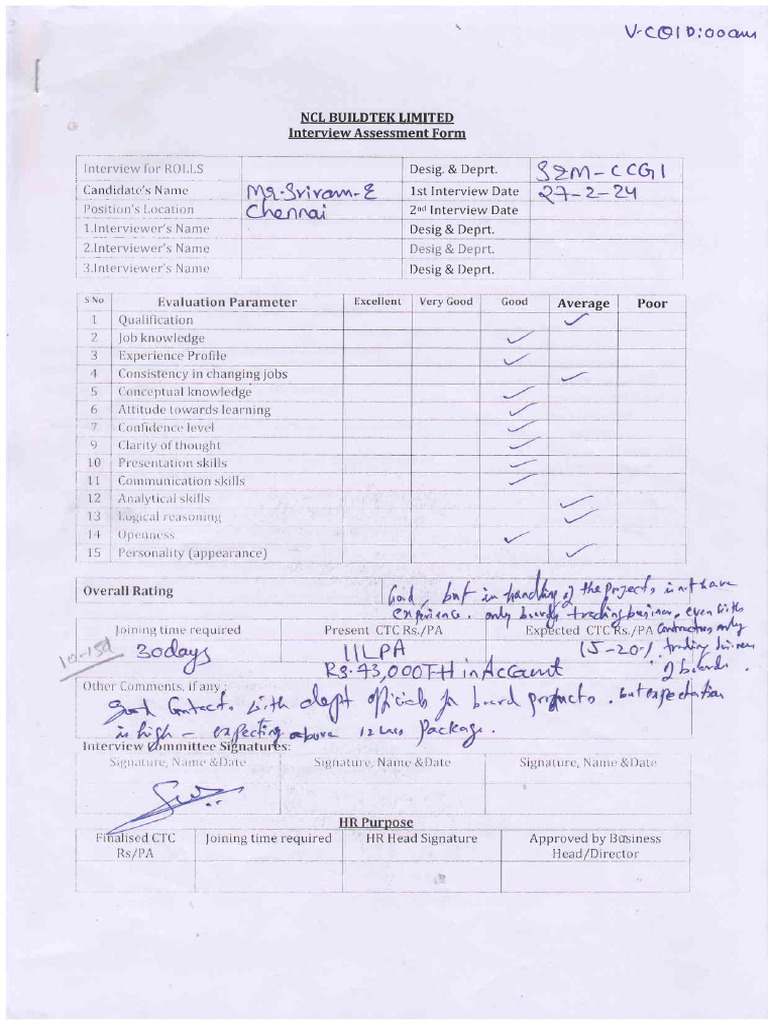 V.C @ 10:00am
NCL BUILDTEK LIMITED
Interview Assessment Form
Interview for ROLLS Desig. & Deprt. SZM-CCG1
Candidate's Name Mr. Sriram-E 1st Interview Date 27-2-24
Position's Location Chennai 2nd Interview Date
1.Interviewer's Name Desig & Deprt.
2.Interviewer's Name Desig & Deprt.
3.Interviewer's Name Desig & Deprt.
S No Evaluation Parameter Excellent Very Good Good Average Poor
1 Qualification ✓
2 Job knowledge ✓
3 Experience Profile ✓
4 Consistency in changing jobs ✓
5 Conceptual knowledge ✓
6 Attitude towards learning ✓
7 Confidence level ✓
9 Clarity of thought ✓
10 Presentation skills ✓
11 Communication skills ✓
12 Analytical skills ✓
13 Logical reasoning ✓
14 Openness ✓
15 Personality (appearance) ✓
Overall Rating Good, but in handling of the projects isn't have
experience. only boards trading business, even with
Joining time required Present CTC Rs./PA Expected CTC Rs./PA Contractors only
10-15d 30days 11LPA 15-20% trading business
Rs. 73,000TH in Account of boards.
Other Comments, if any:
Good Contacts with dept officials for board products. but expectation
is high - expecting above 12 Lacs Package.
Interview Committee Signatures:
Signature, Name &Date Signature, Name &Date Signature, Name &Date
HR Purpose
Finalised CTC Rs/PA Joining time required HR Head Signature Approved by Business
Head/Director